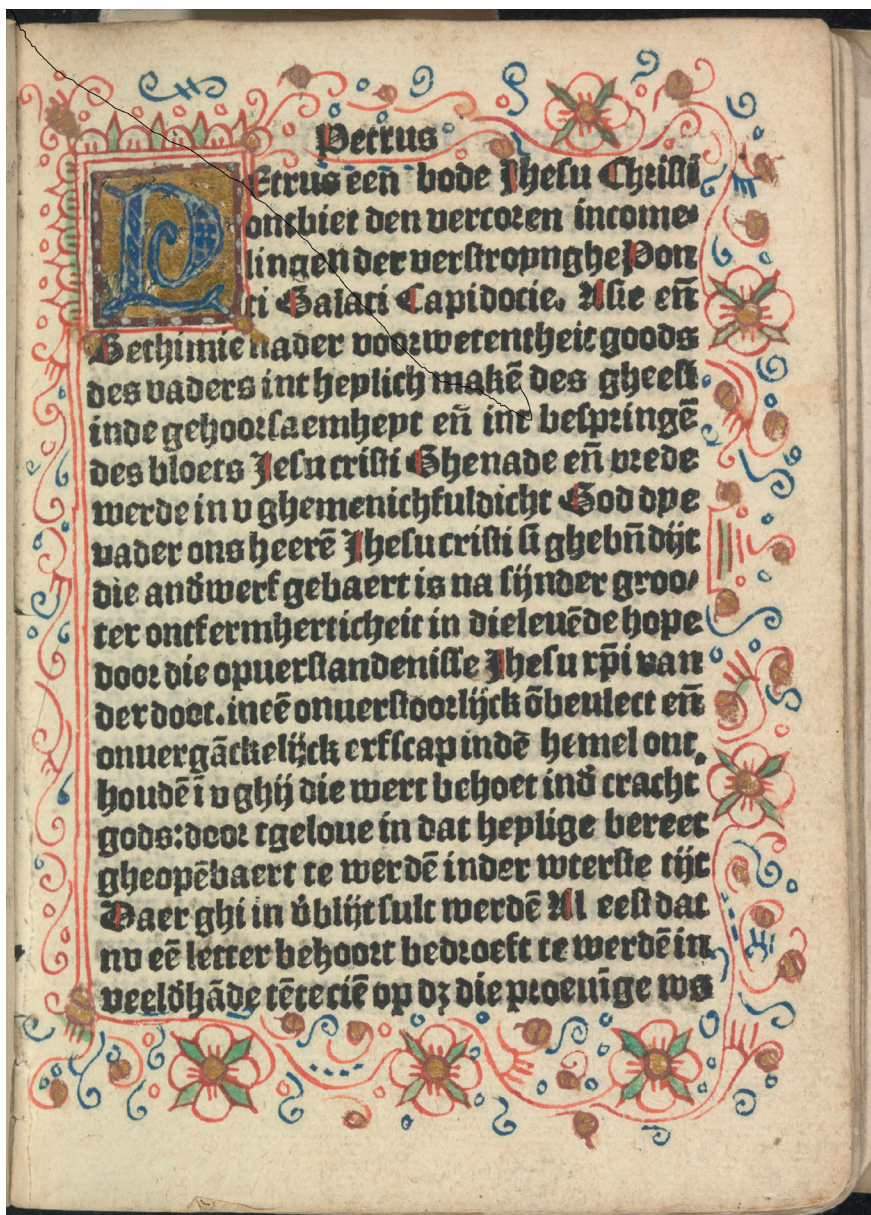 Petrus
PEtrus eeñ bode Jhesu Christi
ontbiet den vercoren income⸗
lingen der verstroynghe Pon
ti Galaci Capidocie. Asie eñ
Bethinie nader voorwetentheit goods
des vaders int heylich makē des gheest
inde gehoorsaemheyt eñ int bespringē
des bloets Jesu cristi Ghenade eñ vrede
werde in v ghemenichfuldicht God dye
vader ons heerē Jhesu cristi si ghebñdijt
die andwerf gebaert is na sijnder groo/
ter ontfermherticheit in die leuēde hope
door die opuerstandenisse Jhesu xp̄i van
der doot. in eē onuerstoorlijck ōbeulect eñ
onuergāckelijck erfscap indē hemel ont,
houdē ī v ghij die wert behoet ind̄ cracht
gods: door tgeloue in dat heylige bereet
gheopēbaert te werdē inder wterste tijt
Daer ghi in v̄blijt sult werdē Al eest dat
nv eē letter behoort bedroeft te werdē in
veeld̄hāde tēteciē op dꝫ die proeuīge ws